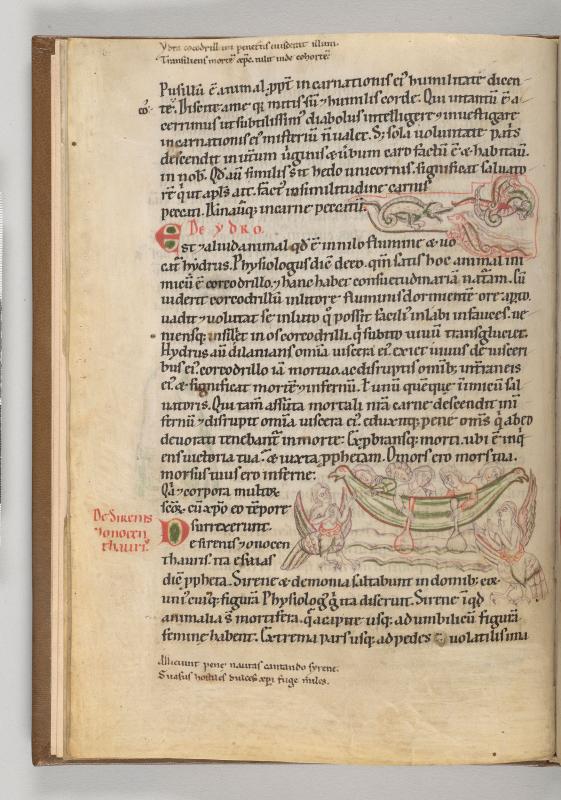 Ydra cocodrillum penetrans
Transiliens morte
Pusillū ē animal ppt incarnationis ei' humilitatē dicen
tē. Discite a me q̇ mitis sū & humilis corde. Qui intantū ē a
cerrimus ut subtilissim' diabolus intelligere & inuestigare
incarnationis ei' misteriū n̄ ualet. S; sola uoluntate patris
descendit in utrum uirginis & uerbum caro factū ē & habitau
in nob. Qd aū similis ē hedo unicornis. significat saluato
rē q̇ ut apls ait. fact' in similitudine carnis
peccati. & in carne peccatū.
DE YDRO.
Est & aliud animal qd ē in nilo flumine & uo
cat hydrus. Physiologus diē de eo. qm̄ satis hoc animal ini
micū ē cocodrillo. & hanc habet consuetudinariā naturam. Cū
uiderit corcodrillū in litore fluminis dormientē ore apto.
uadit & uoluitat se in luto q̇ possit facili' inlabi in fauces. ue
niensq; insilet in os corcodrilli. q̇ subito uiuū transgluciet.
Hydrus aū dilanians omia uiscera ei'. exiet uiuus de uisceri
bus ei'. corcodrillo iā mortuo. ac disruptis omib; intraneis
ei'. & significat mortē & infernū. unū quēque inimicū sal
uatoris. Qui tam assūta mortali carne descendit in in
fernū & disrupit omia uiscera ei'. eduxitq; pene om̄s q̇ ab eo
deuorati tenebant in morte. Exprobransq; morti. ubi ē inq̇
ens uictoria tua. & iuxta pphetam. O mors ero mors tua.
morsus tuus ero inferne:
Qa & corpora multor
scōr. cū xpo eo tēpore
surrexerunt.
De Sirenis
& onocen
thauri'.
De sirenis & onocen
thauris. ita esaias
diē ppheta. Sirene & demonia saltabunt in domib; eor.
uni' cuiq; figurā Physiolog' ita disseruit. Sirene iqd
animalia s mortifera. q̄ a capite usq; ad umbilicū figurā
femine habent. Extrema pars usq; ad pedes uolatilis ima
Alliciunt pene nautas cantando syrene.
Suasus hostiles dulces fuge miles.